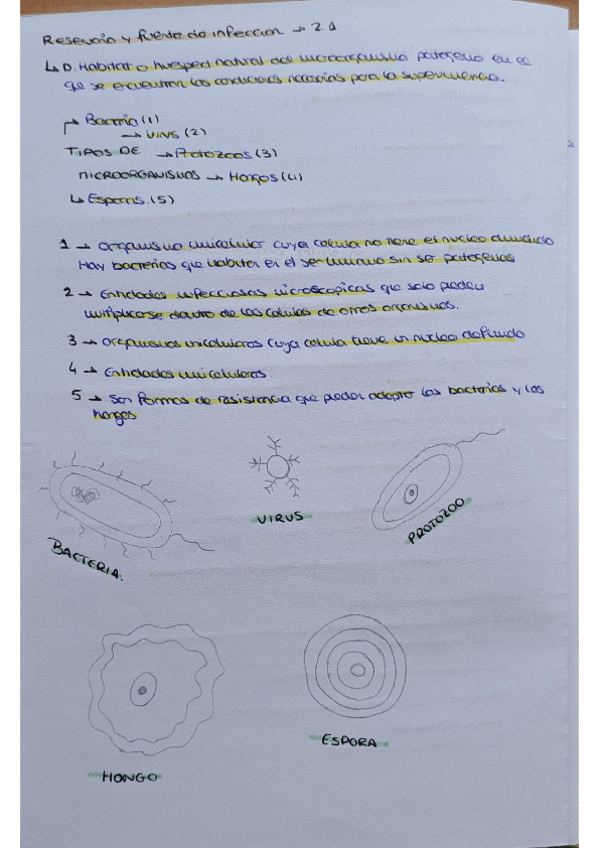 Reservorio y fuente de infeccion → 2.1
↳ D. Habitat o huesped natural del microorganismo patogeno en el
que se encuentran las condiciones necesarias para la supervivencia.
→ Bacteria (1)
→ Virus (2)
TIPOS DE → Protozoos (3)
MICROORGANISMOS → Hongos (4)
↳ Esporas. (5)
1 → Organismo unicelular cuya celula no tiene el nucleo definido
Hay bacterias que habitan en el ser humano sin ser patogenas
2 → Entidades infecciosas microscopicas que solo pueden
multiplicarse dentro de las celulas de otros organismos.
3 → Organismos unicelulares cuya celula tiene un nucleo definido
4 → Entidades unicelulares
5 → Son formas de resistencia que pueden adoptar las bacterias y los
hongos
BACTERIA.
VIRUS
PROTOZOO
HONGO
ESPORA